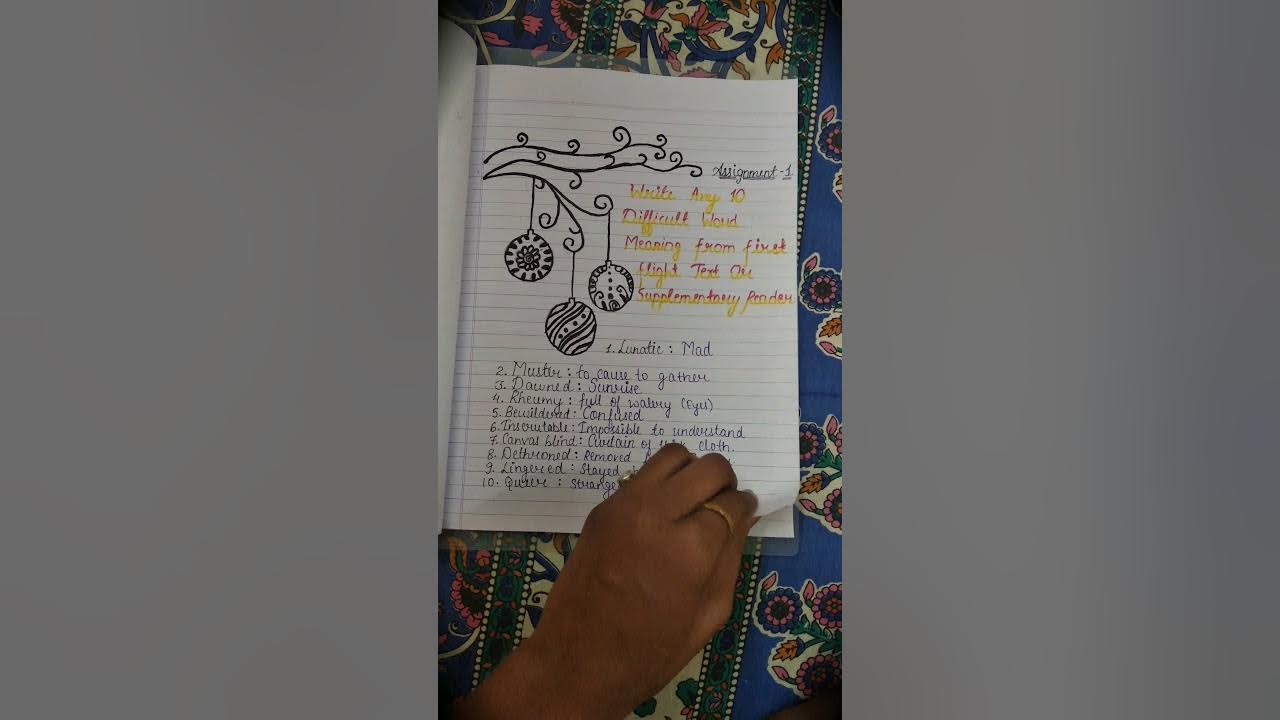 Assignment-1
Write Any 10
Difficult Word
Meaning from first
flight Text Or
Supplementary Reader
1. Lunatic : Mad
2. Muster : to cause to gather
3. Dawned : Sunrise
4. Rheumy : full of watery (Eyes)
5. Bewildered : Confused
6. Inscrutable : Impossible to understand
7. Canvas blind : Curtain of cloth.
8. Dethroned : Removed
9. Lingered : Stayed
10. Queer : Strange